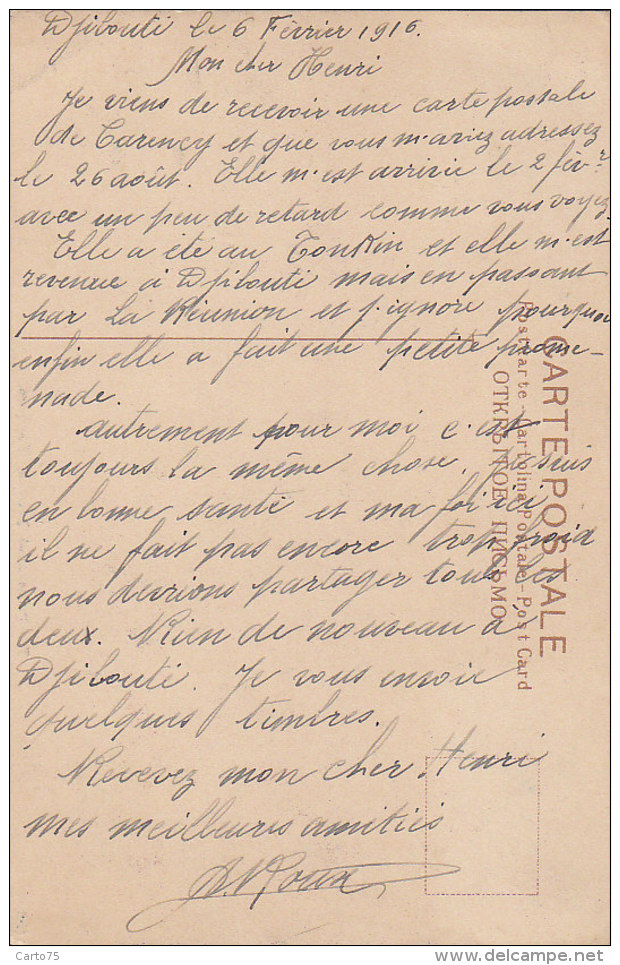 Djibouti le 6 Février 1916.
Mon cher Henri
Je viens de recevoir une carte postale
de Carency et que vous m'aviez adressez
le 26 août. Elle m'est arrivée le 2 févr.
avec un peu de retard comme vous voyez.
Elle a été au Tonkin et elle m'est
revenue à Djibouti mais en passant
par La Réunion et j'ignore pourquoi
enfin elle a fait une petite prome-
nade.
Autrement pour moi c'est
toujours la même chose. Je suis
en bonne santé et ma foi ici
il ne fait pas encore trop froid
nous devrions partager tous les
deux. Rien de nouveau à
Djibouti. Je vous envoie
quelques timbres.
Recevez mon cher Henri
mes meilleures amitiés
A. Roux
CARTE POSTALE
Postkarte - Cartolina Postale - Post Card
ОТКРЫТОЕ ПИСЬМО
Carto75
delcampe.net